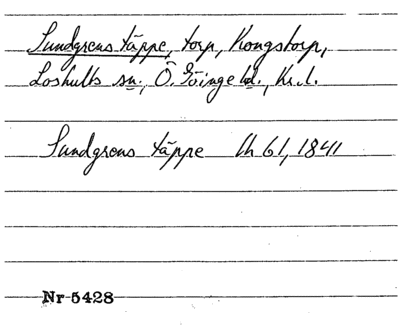 Sundgrens täppe, torp, Kongstorp,
Loshults sn., Ö. Göinge hd., Kr. l.
Sundgrens täppe lh 61, 1841
Nr 5428